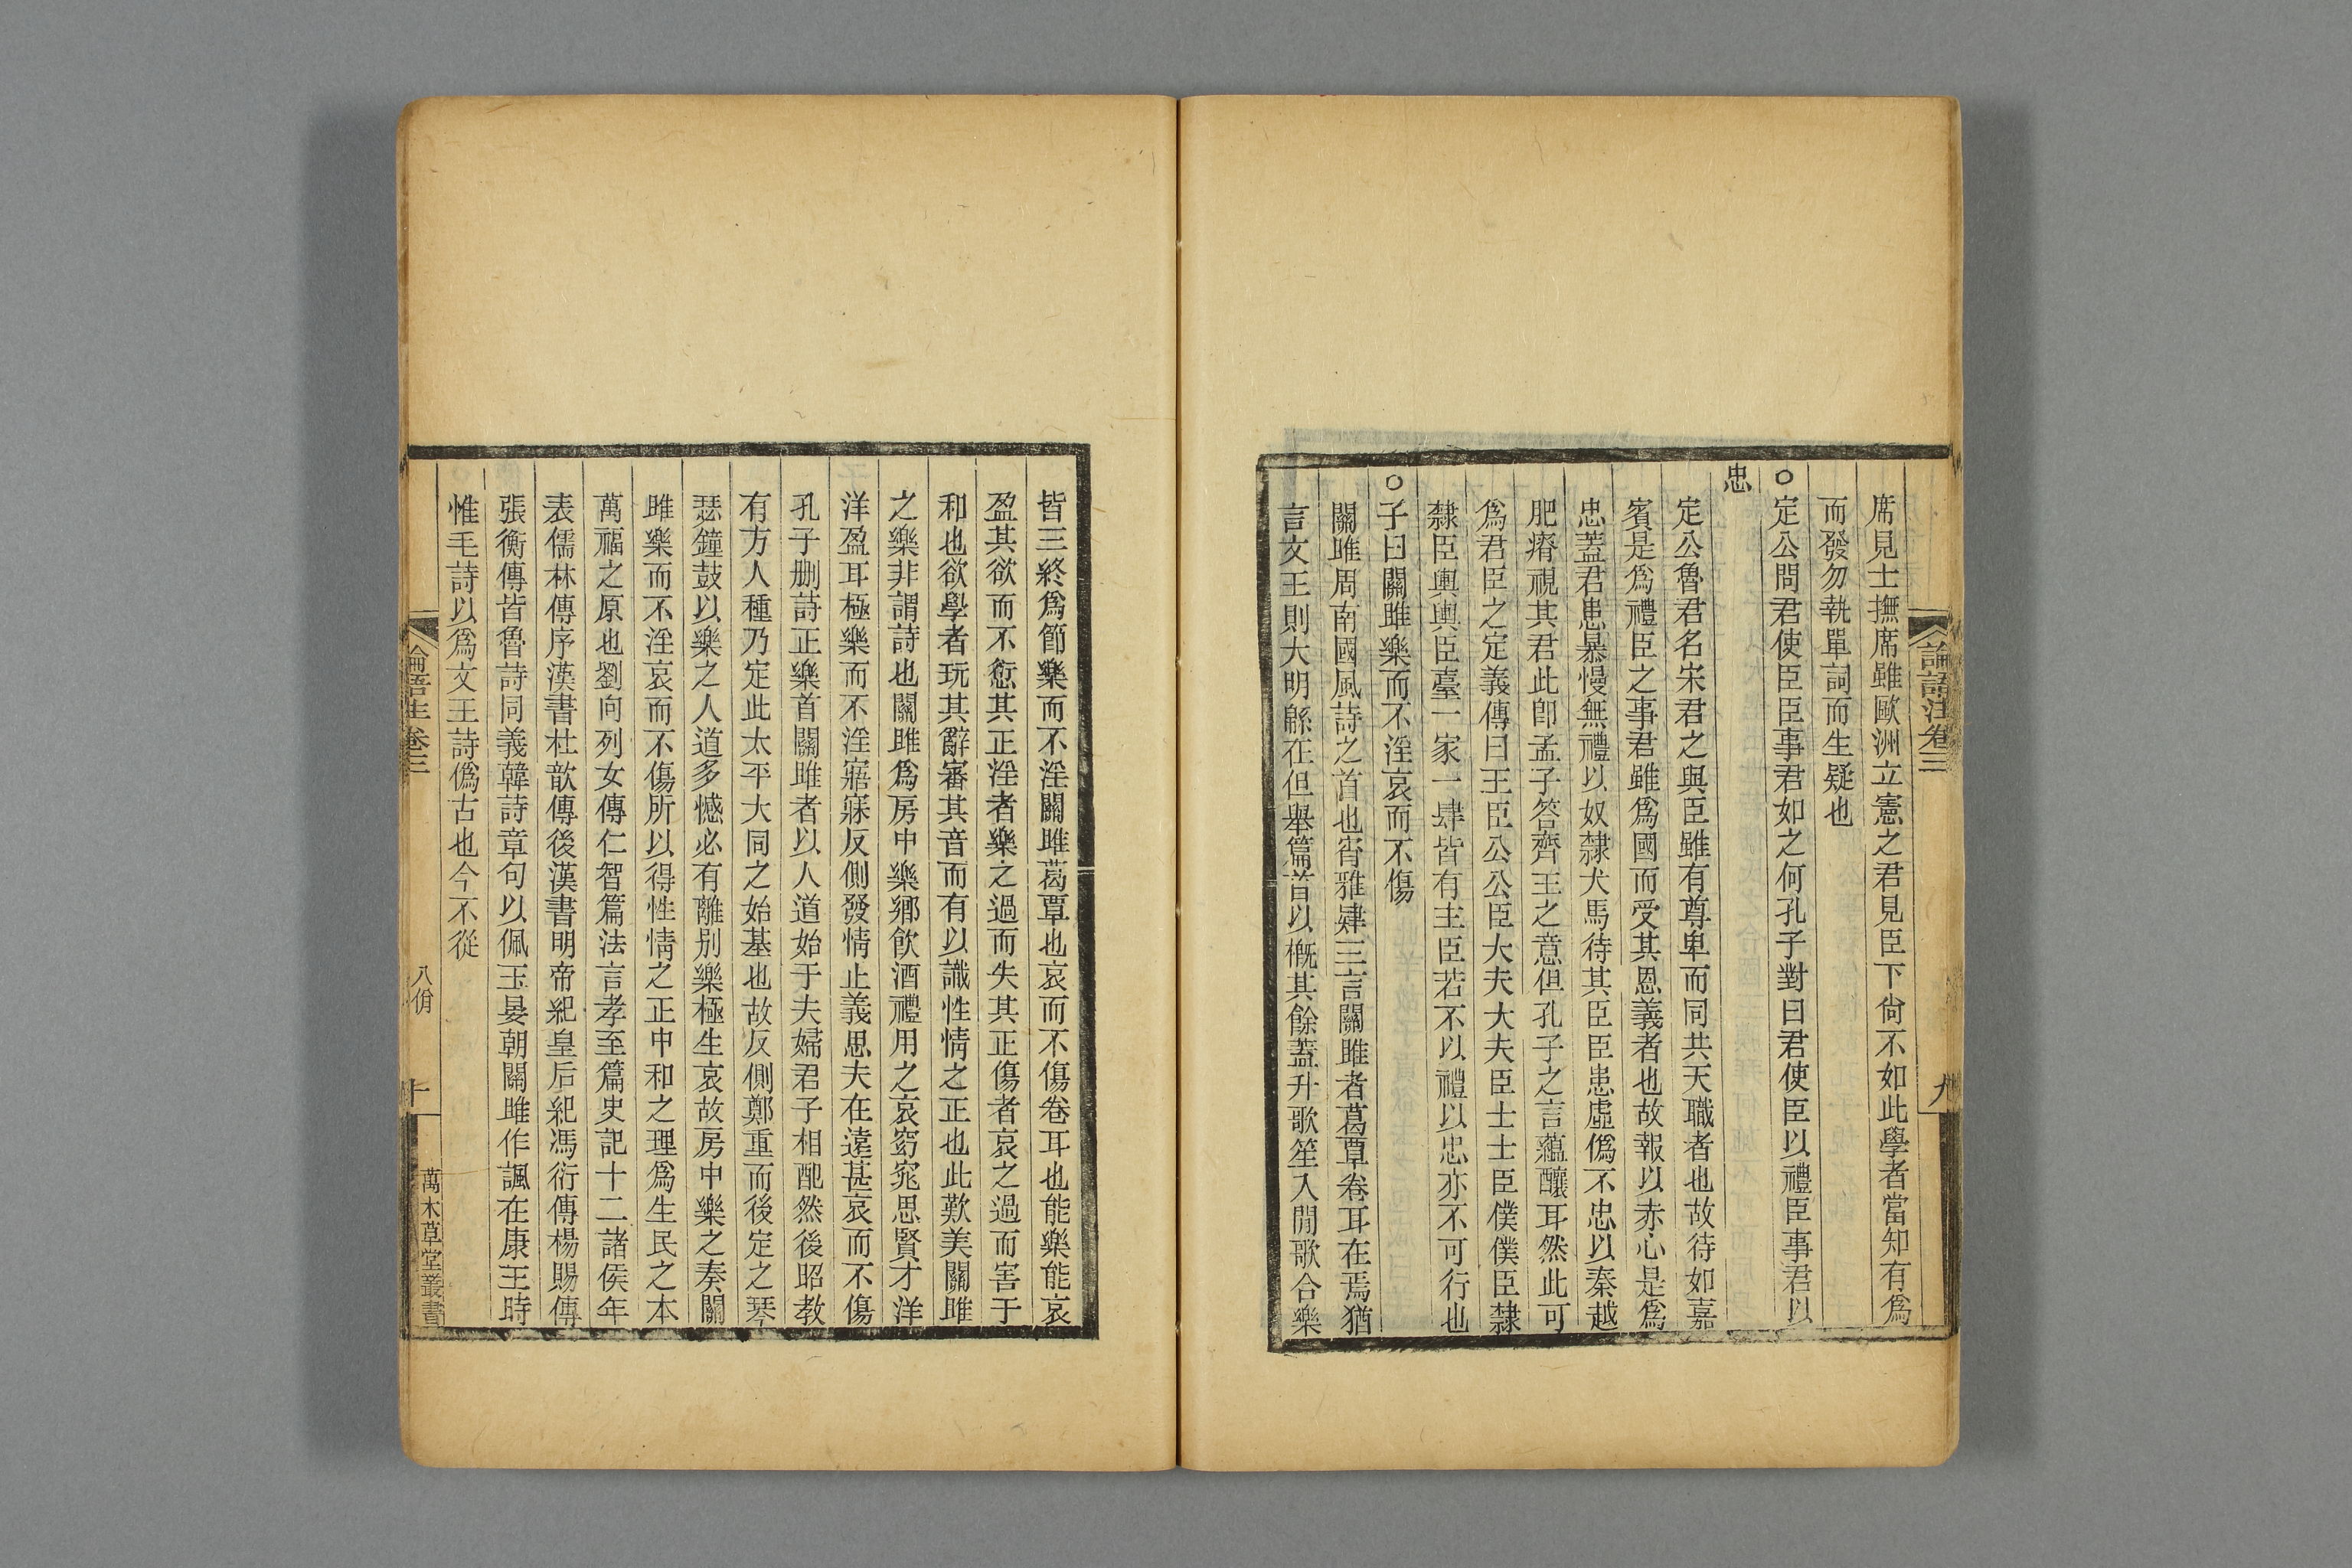 論語注卷三
九
席見士撫席雖歐洲立憲之君見臣下尙不如此學者當知有爲
而發勿執單詞而生疑也
○定公問君使臣臣事君如之何孔子對曰君使臣以禮臣事君以
忠
定公魯君名宋君之與臣雖有尊卑而同共天職者也故待如嘉
賓是爲禮臣之事君雖爲國而受其恩義者也故報以赤心是爲
忠蓋君患暴慢無禮以奴隸犬馬待其臣臣患虛僞不忠以秦越
肥瘠視其君此卽孟子答齊王之意但孔子之言蘊釀耳然此可
爲君臣之定義傳曰王臣公公臣大夫大夫臣士士臣僕僕臣隸
隸臣輿輿臣臺一家一肆皆有主臣若不以禮以忠亦不可行也
○子曰關雎樂而不淫哀而不傷
關雎周南國風詩之首也宵雅肄三言關雎者葛覃卷耳在焉猶
言文王則大明緜在但舉篇首以概其餘蓋升歌笙入閒歌合樂
皆三終爲節樂而不淫關雎葛覃也哀而不傷卷耳也能樂能哀
盈其欲而不愆其正淫者樂之過而失其正傷者哀之過而害于
和也欲學者玩其辭審其音而有以識性情之正也此歎美關雎
之樂非謂詩也關雎爲房中樂鄉飮酒禮用之哀窈窕思賢才洋
洋盈耳極樂而不淫寤寐反側發情止義思夫在遠甚哀而不傷
孔子刪詩正樂首關雎者以人道始于夫婦君子相配然後昭教
有方人種乃定此太平大同之始基也故反側鄭重而後定之琴
瑟鐘鼓以樂之人道多憾必有離別樂極生哀故房中樂之奏關
雎樂而不淫哀而不傷所以得性情之正中和之理爲生民之本
萬福之原也劉向列女傳仁智篇法言孝至篇史記十二諸侯年
表儒林傳序漢書杜歆傳後漢書明帝紀皇后紀馮衍傳楊賜傳
張衡傳皆魯詩同義韓詩章句以佩玉晏朝關雎作諷在康王時
惟毛詩以爲文王詩僞古也今不從
論語注卷三
八佾
十
萬木草堂叢書